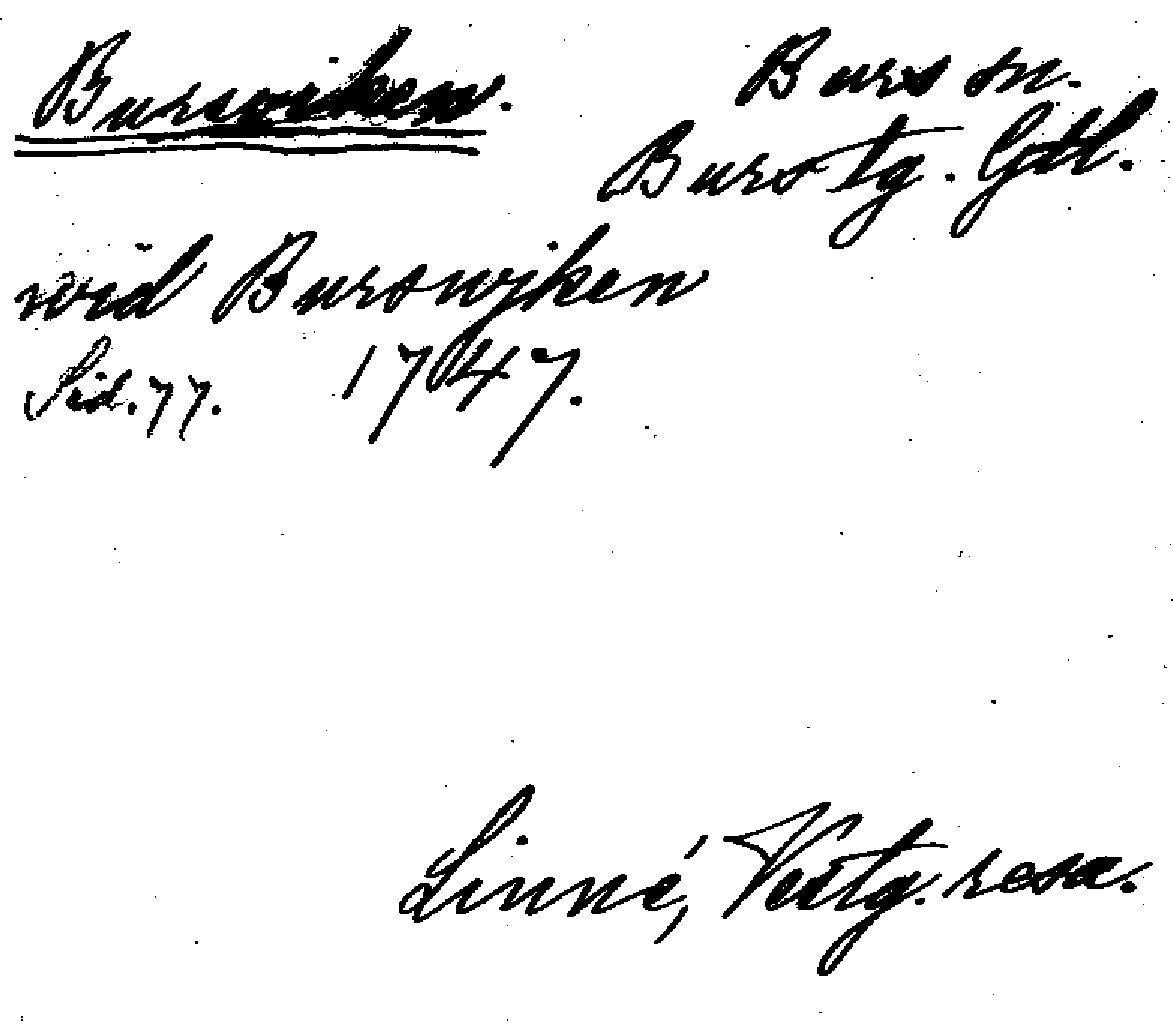 Bursviken.
Burs sn.
Burs tg. Gtl.
wid Burswjken
Sid. 77. 1747.
Linné, Vestg. resa.